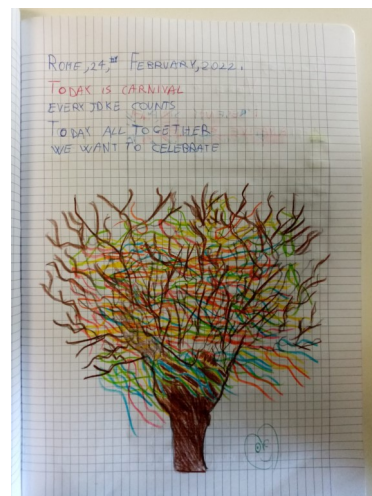 ROME, 24,th FEBRUARY, 2022.
TODAY IS CARNIVAL
EVERY JOKE COUNTS
TODAY ALL TOGETHER
WE WANT TO CELEBRATE